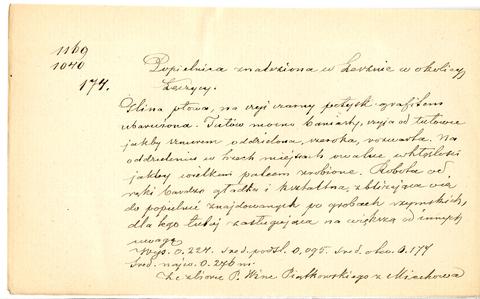 1169
1040
174.
Popielnica znaleziona w Łęcznie w okolicy
Łęczycy.
Glina płowa, na szyji czarny połysk grafitem
ubarwiona. Tułów mocno baniasty, szyja od tułowu
jakby sznurem oddzielona, szeroka, rozwarta. Na
oddzieleniu w trzech miejscach owalne wklęsłości
jakby wielkim palcem zrobione. Robota od
ręki bardzo gładka i kształtna, zbliżająca się
do popielnic znajdowanych po grobach rzymskich,
dla tego tutaj zasługująca na większą od innych
uwagę
Wys. 0.224. Śred. podst. 0,095. Śred. otw. 0.177
Śred. najw. 0.246 m.
Ze zbiorów P. Wine Piątkowskiego z Miechowa